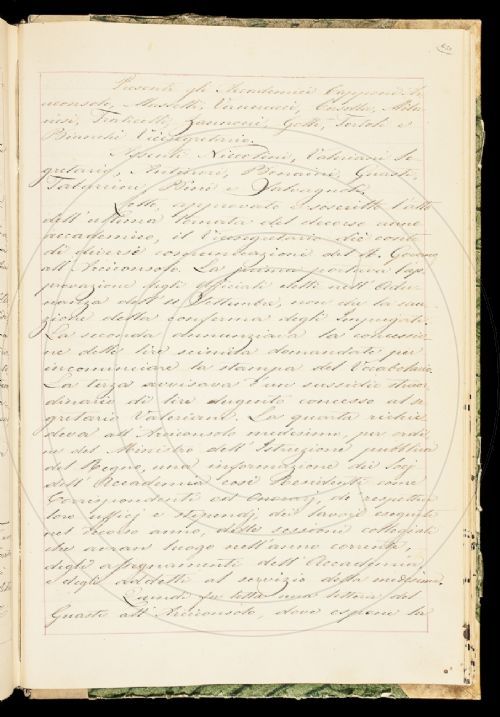 Presenti gli Accademici Capponi Ar-
ciconsolo, Masselli, Vannucci, Casella,
Fraticelli, Zannoni, Gotti, Tortoli e
Bianchi Vicesegretario.
Assenti Niccolini, Valeriani Se-
gretario, Bonaini, Guasti,
Tabarrini,
Letto, approvato e soscritto l'atto
dell'ultima tornata del decorso anno
accademico, il Vicesegretario diè conto
di diverse comunicazioni del R. Governo
all'Arciconsolo. La prima portava l'ap-
provazione degli Uficiali eletti nell'Adu-
nanza dell' 11 Settembre, non che la san-
zione della conferma degli Impiegati.
La seconda annunziava la concessio-
ne delle lire seimila domandate per
incominciare la stampa del Vocabolario.
La terza avvisava d'un sussidio stra-
ordinario di lire dugento concesso al Se-
gretario Valeriani. La quarta richie-
deva all'Arciconsolo medesimo, per ordi-
ne del Ministro dell'Istruzione pubblica
del Regno, una informazione dei Socj
dell'Accademia così Residenti come
Corrispondenti ed Onorarj, de' respetti-
vi loro ufficj e stipendj, de' lavori eseguiti
nel decorso anno, delle sessioni collegiali
che avran luogo nell'anno corrente,
degli assegnamenti dell'Accademia,
e degli addetti al servizio della medesima.
Quindi fu letta una lettera del
Guasti all'Arciconsolo, dove espone la